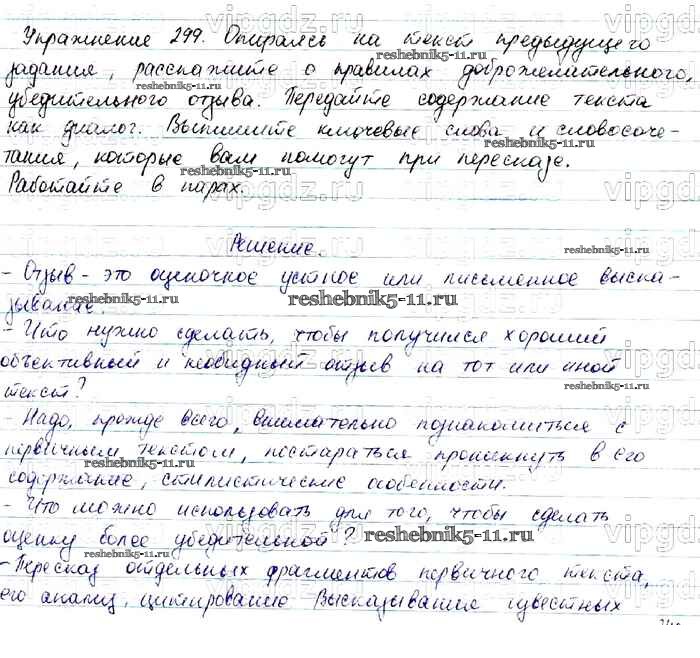 Упражнение 299. Опираясь на текст предыдущего
задания, расскажите о правилах доброжелательного,
убедительного отзыва. Передайте содержание текста
как диалог. Выпишите ключевые слова и словосоче-
тания, которые вам помогут при пересказе.
Работайте в парах.
Решение.
- Отзыв - это оценочное устное или письменное выска-
зывание.
- Что нужно сделать, чтобы получился хороший
объективный и необидный отзыв на тот или иной
текст?
- Надо, прежде всего, внимательно познакомиться с
первичным текстом, постараться проникнуть в его
содержание, стилистические особенности.
- Что можно использовать для того, чтобы сделать
оценку более убедительной?
- Пересказ отдельных фрагментов первичного текста,
его анализ, цитирование высказывания известных
vipgdz.ru
reshebnik5-11.ru